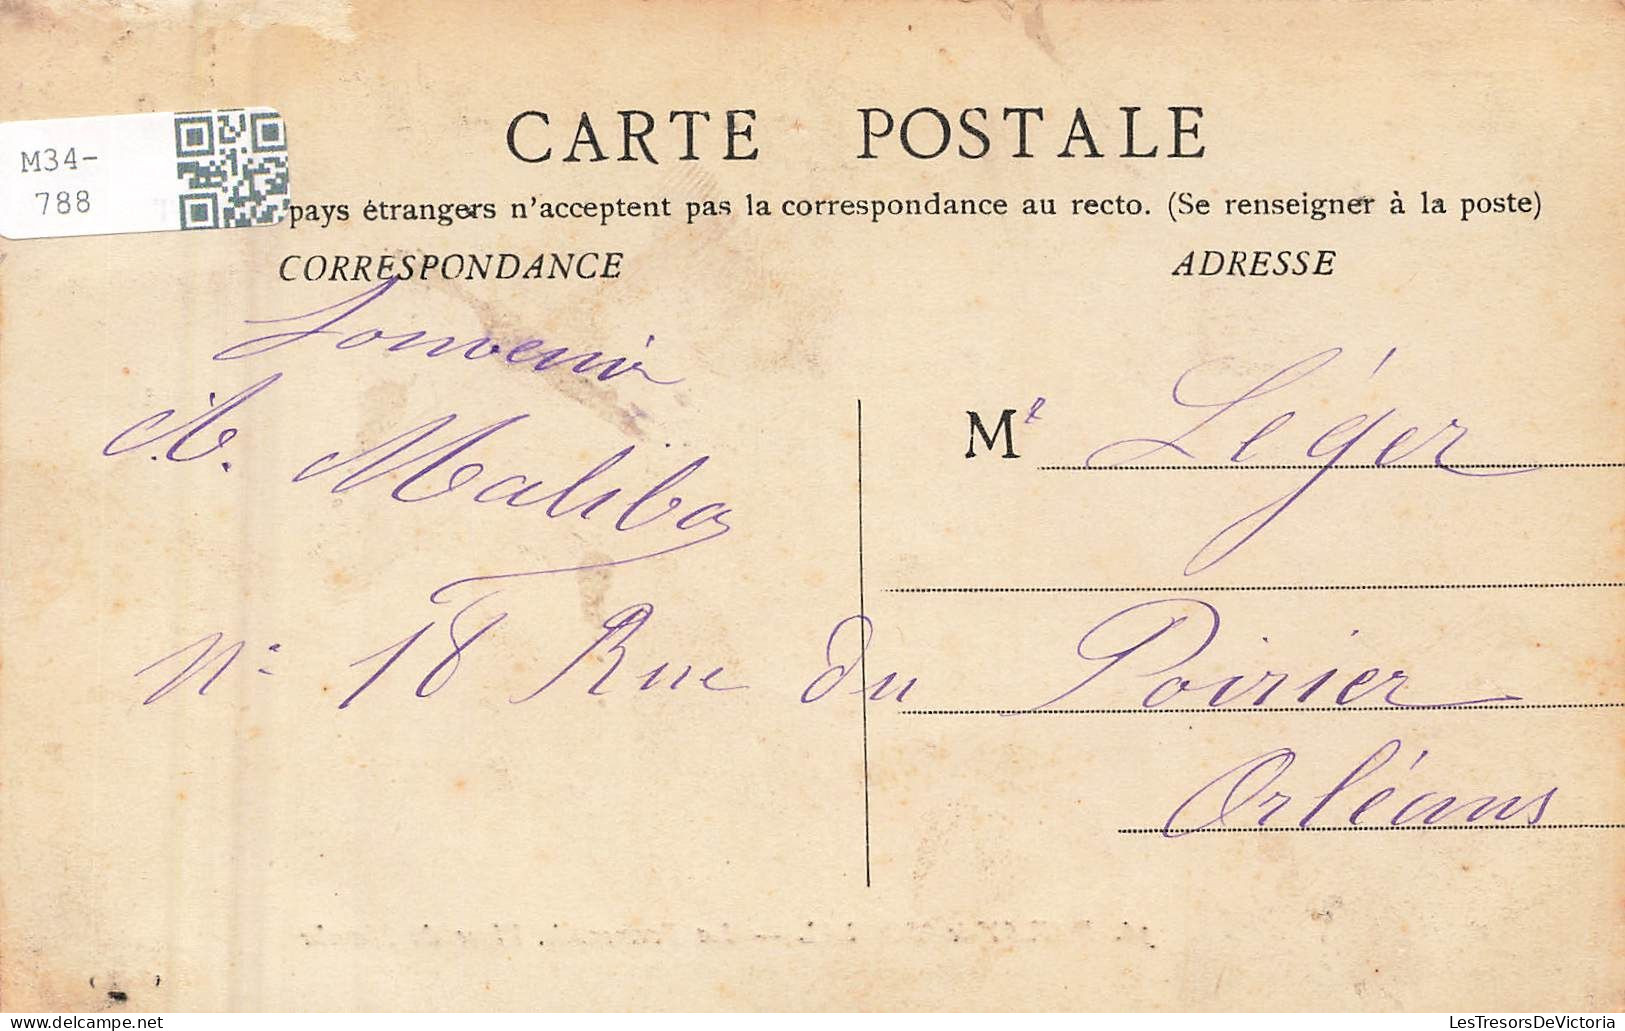 CARTE POSTALE
M34-
788
pays étrangers n'acceptent pas la correspondance au recto. (Se renseigner à la poste)
CORRESPONDANCE
ADRESSE
Souvenir
A. Maliba
Mr Léger
No 18 Rue du Poirier
Orléans
LesTresorsDeVictoria